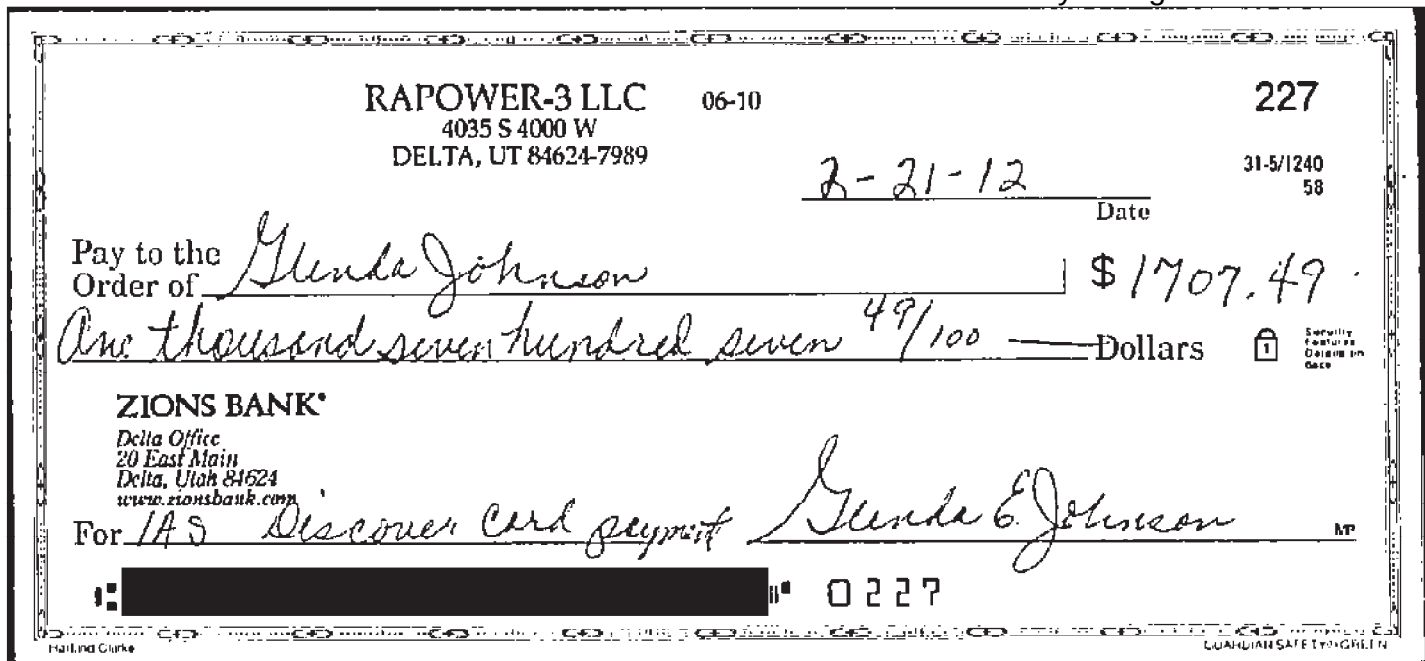 RAPOWER-3 LLC 06-10 227
4035 S 4000 W
DELTA, UT 84624-7989
31-5/1240
58
2-21-12
Date
Pay to the
Order of Glenda Johnson $ 1707.49
One thousand seven hundred seven 49/100 Dollars
Security
Features
Details on
Back
ZIONS BANK
Delta Office
20 East Main
Delta, Utah 84624
www.zionsbank.com
For IAS Discover Card payment Glenda E. Johnson MP
0227
Harland Clarke GUARDIAN SAFETY GREEN